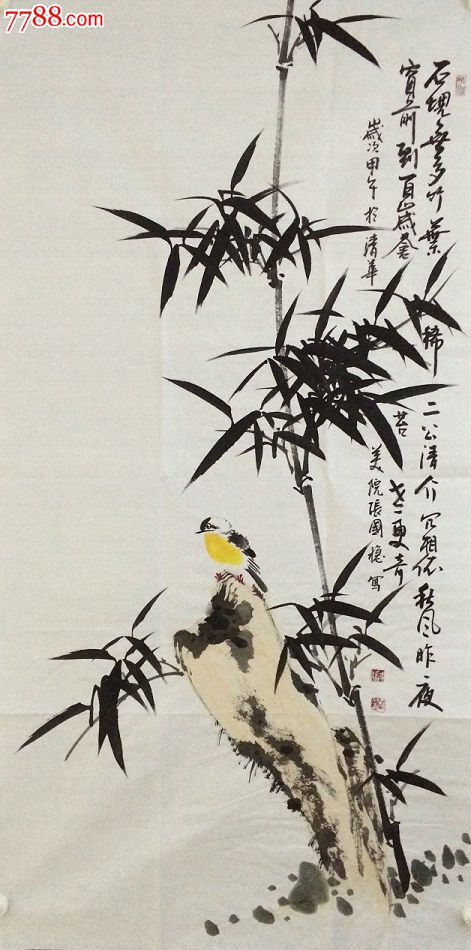 7788.com
石塊無多竹葉稀二公清介冣相依秋風昨夜
窗前到百歲蒼苔老更奇
歲次甲午於清華美院張國穩寫